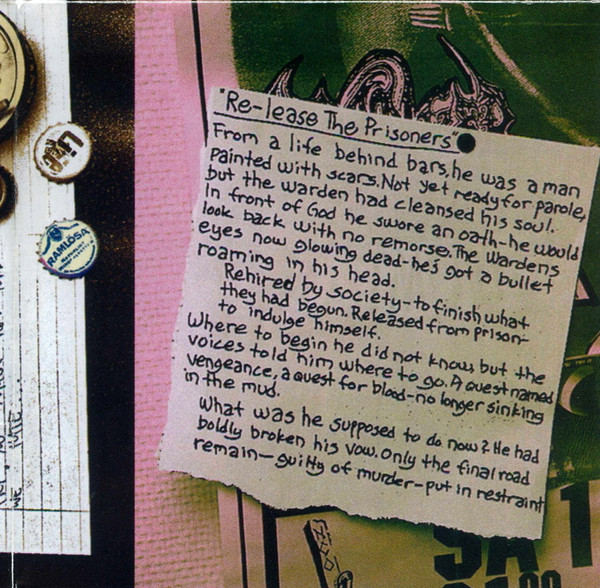 "Re-lease The Prisoners"
From a life behind bars, he was a man
painted with scars. Not yet ready for parole,
but the warden had cleansed his soul.
In front of God he swore an oath-he would
look back with no remorse. The Wardens
eyes now glowing dead-he's got a bullet
roaming in his head.
Rehired by society-to finish what
they had begun. Released from prison-
to indulge himself.
Where to begin he did not know, but the
voices told him where to go. A quest named
vengeance, a quest for blood-no longer sinking
in the mud.
What was he supposed to do now? He had
boldly broken his vow. Only the final road
remain-guilty of murder-put in restraint
RAMLÖSA
WE HATE...
SA